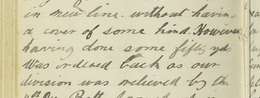 in mine line. without having
a cover of some kind. However
having done some fifty yds
was ordered back as our
division was relieved by the